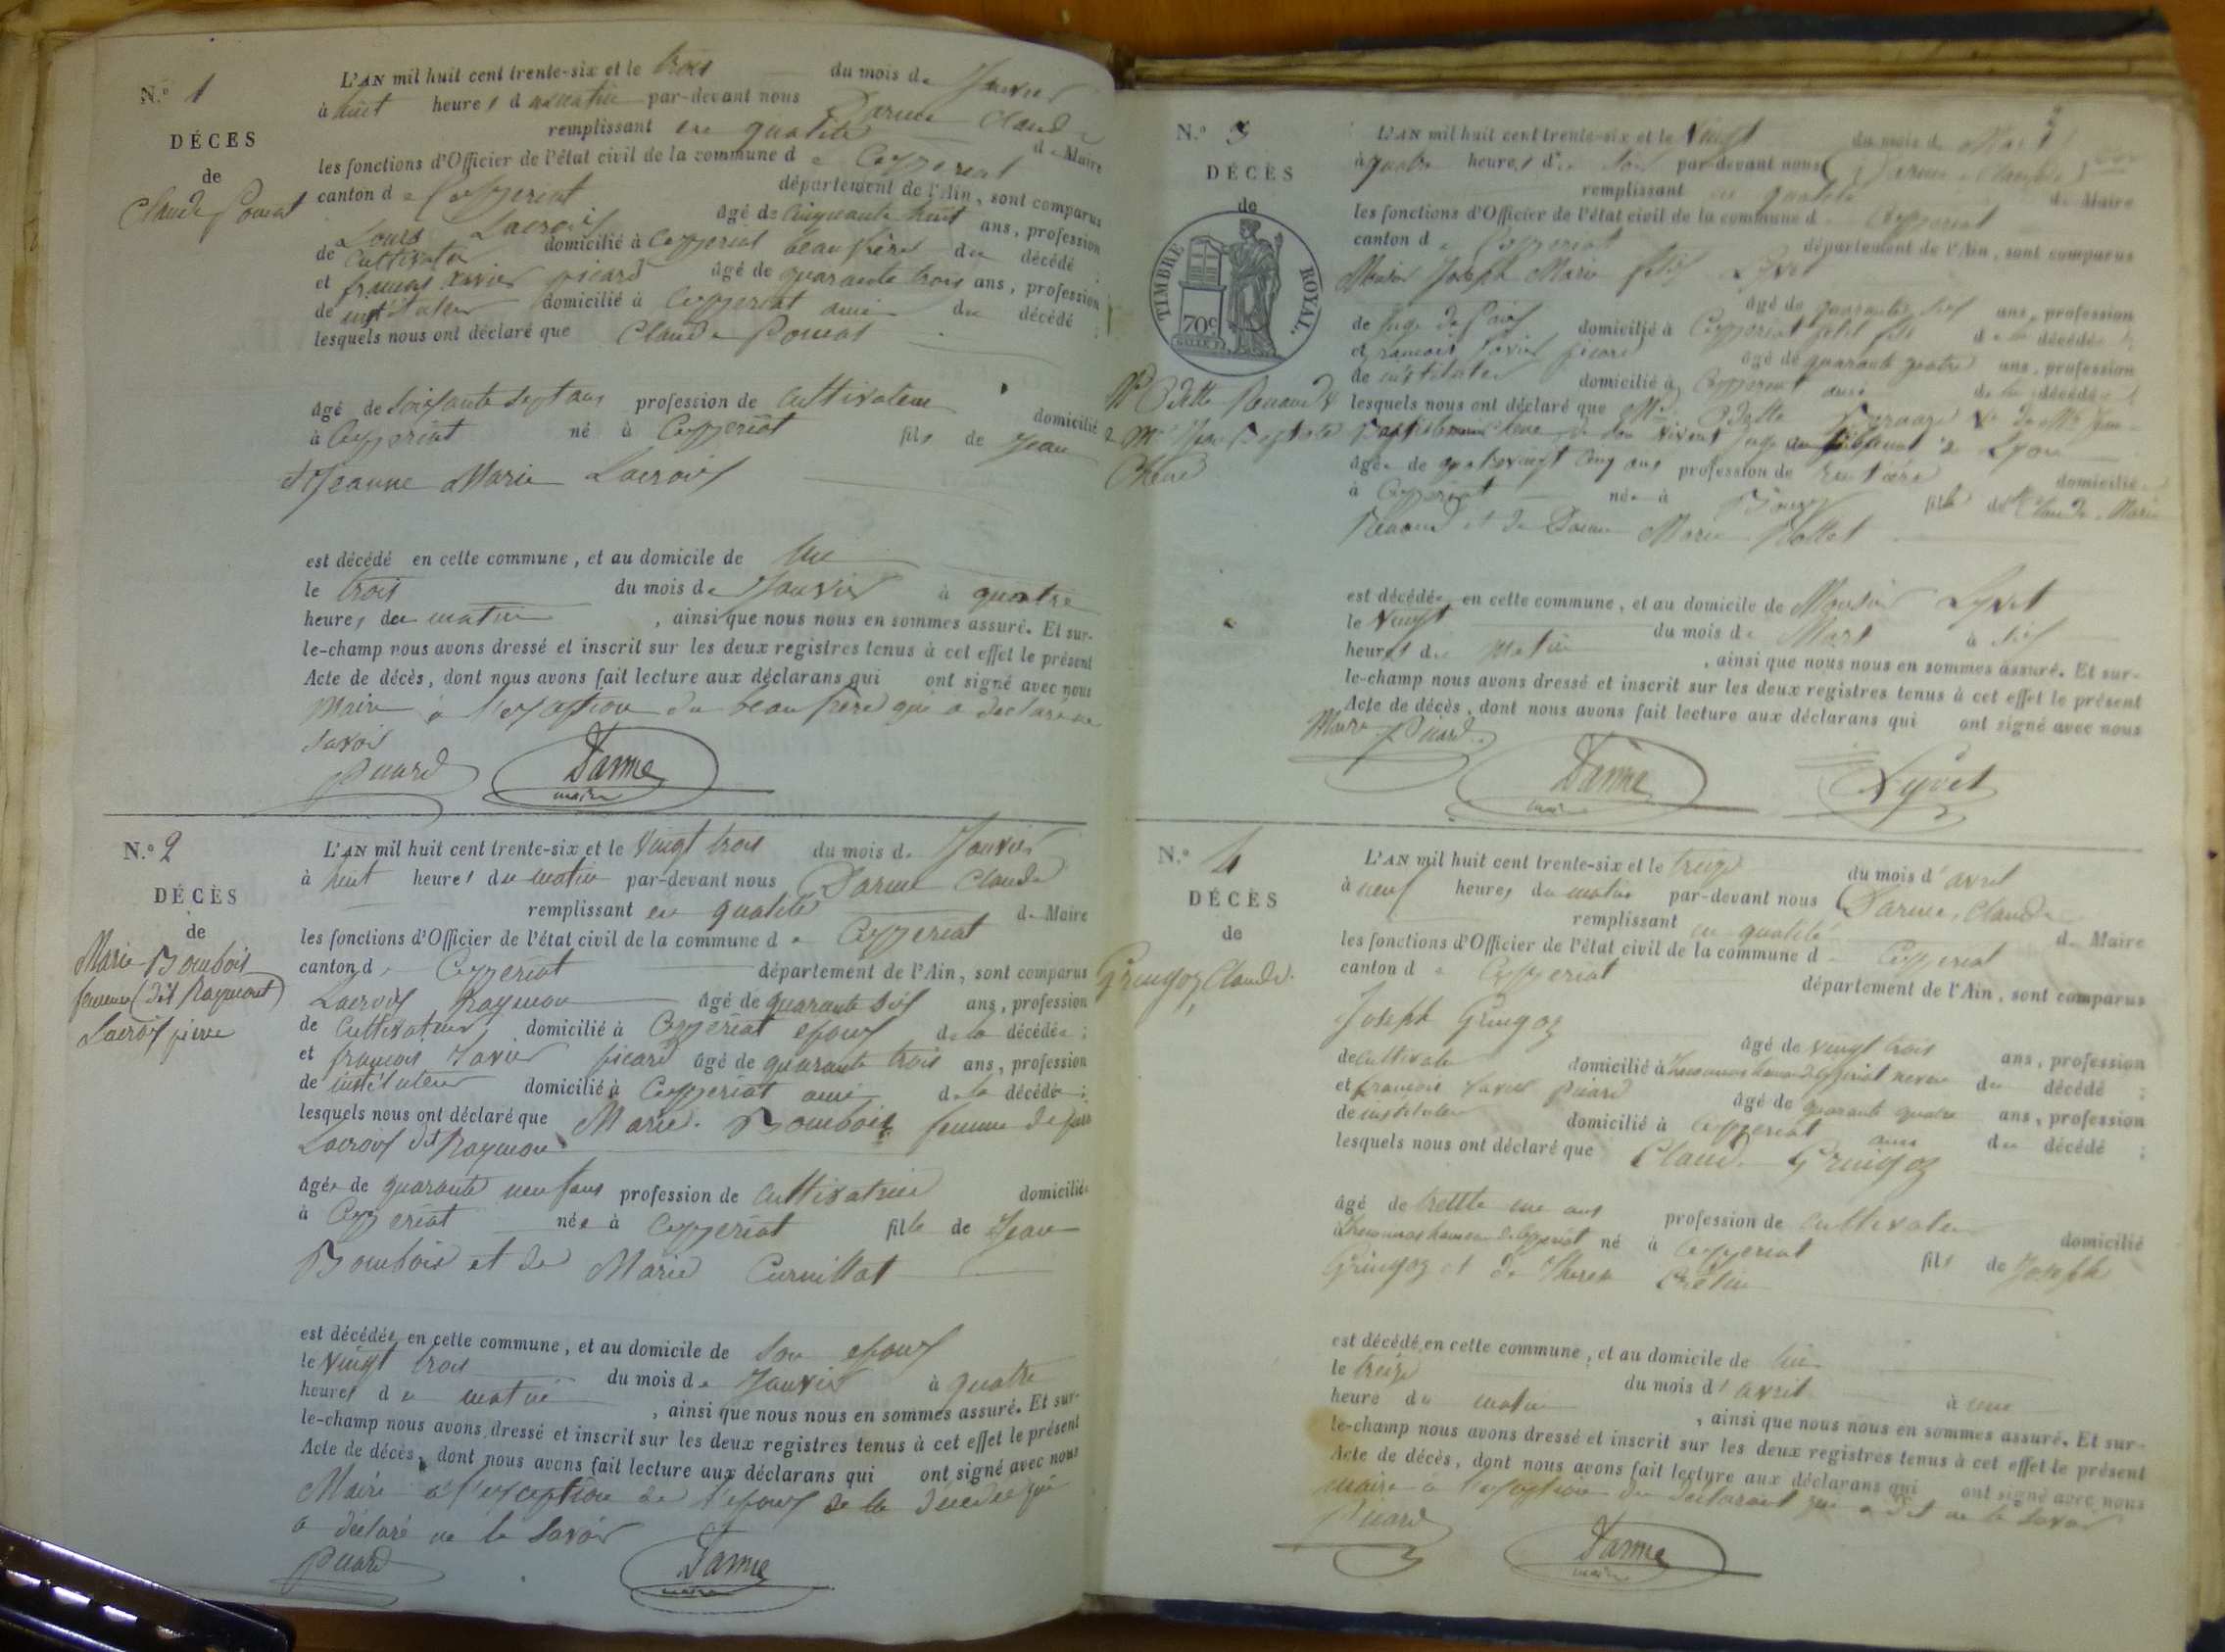 N.° 1
DÉCES
de
Claude Pomat
L'AN mil huit cent trente-six et le trois du mois de Janvier
à huit heures du matin par-devant nous Darme Claude
remplissant en qualité de Maire
les fonctions d'Officier de l'état civil de la commune de Ceyzeriat
canton de Ceyzeriat département de l'Ain, sont comparus
Louis Lacroix âgé de Cinquante huit ans, profession
de Cultivateur domicilié à Ceyzeriat beau frère du décédé ;
et françois Xavier picard âgé de quarante trois ans, profession
de instituteur domicilié à Ceyzeriat ami du décédé ;
lesquels nous ont déclaré que Claude Pomat
âgé de Soixante Sept ans profession de Cultivateur domicilié
à Ceyzeriat né à Ceyzeriat fils de Jean
et Jeanne Marie Lacroix
est décédé en cette commune, et au domicile de lui
le trois du mois de Janvier à quatre
heures du matin , ainsi que nous nous en sommes assuré. Et sur-
le-champ nous avons dressé et inscrit sur les deux registres tenus à cet effet le présent
Acte de décès, dont nous avons fait lecture aux déclarans qui ont signé avec nous
Maire à l'exception du beau frère qui a déclaré ne
savoir
Picard Darme
maire
N.° 2
DÉCÈS
de
Marie Bombois
femme (dit Raymond)
Lacroix pierre
L'AN mil huit cent trente-six et le Vingt trois du mois de Janvier
à huit heures du matin par-devant nous Darme Claude
remplissant en qualité de Maire
les fonctions d'Officier de l'état civil de la commune de Ceyzeriat
canton de Ceyzeriat département de l'Ain, sont comparus
Lacroix Raymon âgé de quarante Six ans, profession
de Cultivateur domicilié à Ceyzeriat epoux de la décédée ;
et françois Xavier picard âgé de quarante trois ans, profession
de instituteur domicilié à Ceyzeriat ami de la décédée ;
lesquels nous ont déclaré que Marie Bombois femme de
Lacroix dit Raymon
âgée de quarante neuf ans profession de Cultivatrice domiciliée
à Ceyzeriat née à Ceyzeriat fille de Jean
Bombois et de Marie Curnillat
est décédée en cette commune, et au domicile de Son epoux
le Vingt trois du mois de Janvier à quatre
heures du matin , ainsi que nous nous en sommes assuré. Et sur-
le-champ nous avons dressé et inscrit sur les deux registres tenus à cet effet le présent
Acte de décès, dont nous avons fait lecture aux déclarans qui ont signé avec nous
Maire à l'exception de l'epoux de la décédée qui
a déclaré ne le Savoir
Picard Darme
maire
N.° 3
DÉCÈS
de
TIMBRE ROYAL.
70c
Odette
Jean Baptiste
Chene
L'AN mil huit cent trente-six et le Vingt du mois de Mars
à quatre heures du Soir par-devant nous Darme Claude
remplissant en qualité de Maire
les fonctions d'Officier de l'état civil de la commune de Ceyzeriat
canton de Ceyzeriat département de l'Ain, sont comparus
Joseph Marie Lyvet
âgé de quarante Six ans, profession
de Juge de Paix domicilié à Ceyzeriat petit fils de la décédée ;
et françois Xavier picard âgé de quarante quatre ans, profession
de instituteur domicilié à Ceyzeriat ami de la décédée ;
lesquels nous ont déclaré que Odette
de Son Vivant Juge à Lyon
âgée de quatrevingt Cinq ans profession de rentière domiciliée
à Ceyzeriat née à Bourg fille de Claude Marie
et de Dame Marie
est décédée en cette commune, et au domicile de Lyvet
le Vingt du mois de Mars à Six
heures du Matin , ainsi que nous nous en sommes assuré. Et sur-
le-champ nous avons dressé et inscrit sur les deux registres tenus à cet effet le présent
Acte de décès, dont nous avons fait lecture aux déclarans qui ont signé avec nous
Maire Picard
Darme Lyvet
maire
N.° 4
DÉCÈS
de
Gringoz Claude.
L'AN mil huit cent trente-six et le treize du mois d'avril
à neuf heures du matin par-devant nous Darme, Claude
remplissant en qualité de Maire
les fonctions d'Officier de l'état civil de la commune de Ceyzeriat
canton de Ceyzeriat département de l'Ain, sont comparus
Joseph Gringoz
âgé de vingt trois ans, profession
de Cultivateur domicilié à hameau de Ceyzeriat neveu du décédé ;
et françois Xavier Picard âgé de quarante quatre ans, profession
de instituteur domicilié à Ceyzeriat ami du décédé ;
lesquels nous ont déclaré que Claude Gringoz
âgé de trente une ans profession de Cultivateur domicilié
hameau de Ceyzeriat né à Ceyzeriat fils de Joseph
Gringoz et de
est décédé en cette commune, et au domicile de lui
le treize du mois d'avril à une
heure du matin , ainsi que nous nous en sommes assuré. Et sur-
le-champ nous avons dressé et inscrit sur les deux registres tenus à cet effet le présent
Acte de décès, dont nous avons fait lecture aux déclarans qui ont signé avec nous
maire à l'exception du déclarant qui a dit ne le Savoir
Picard Darme
maire